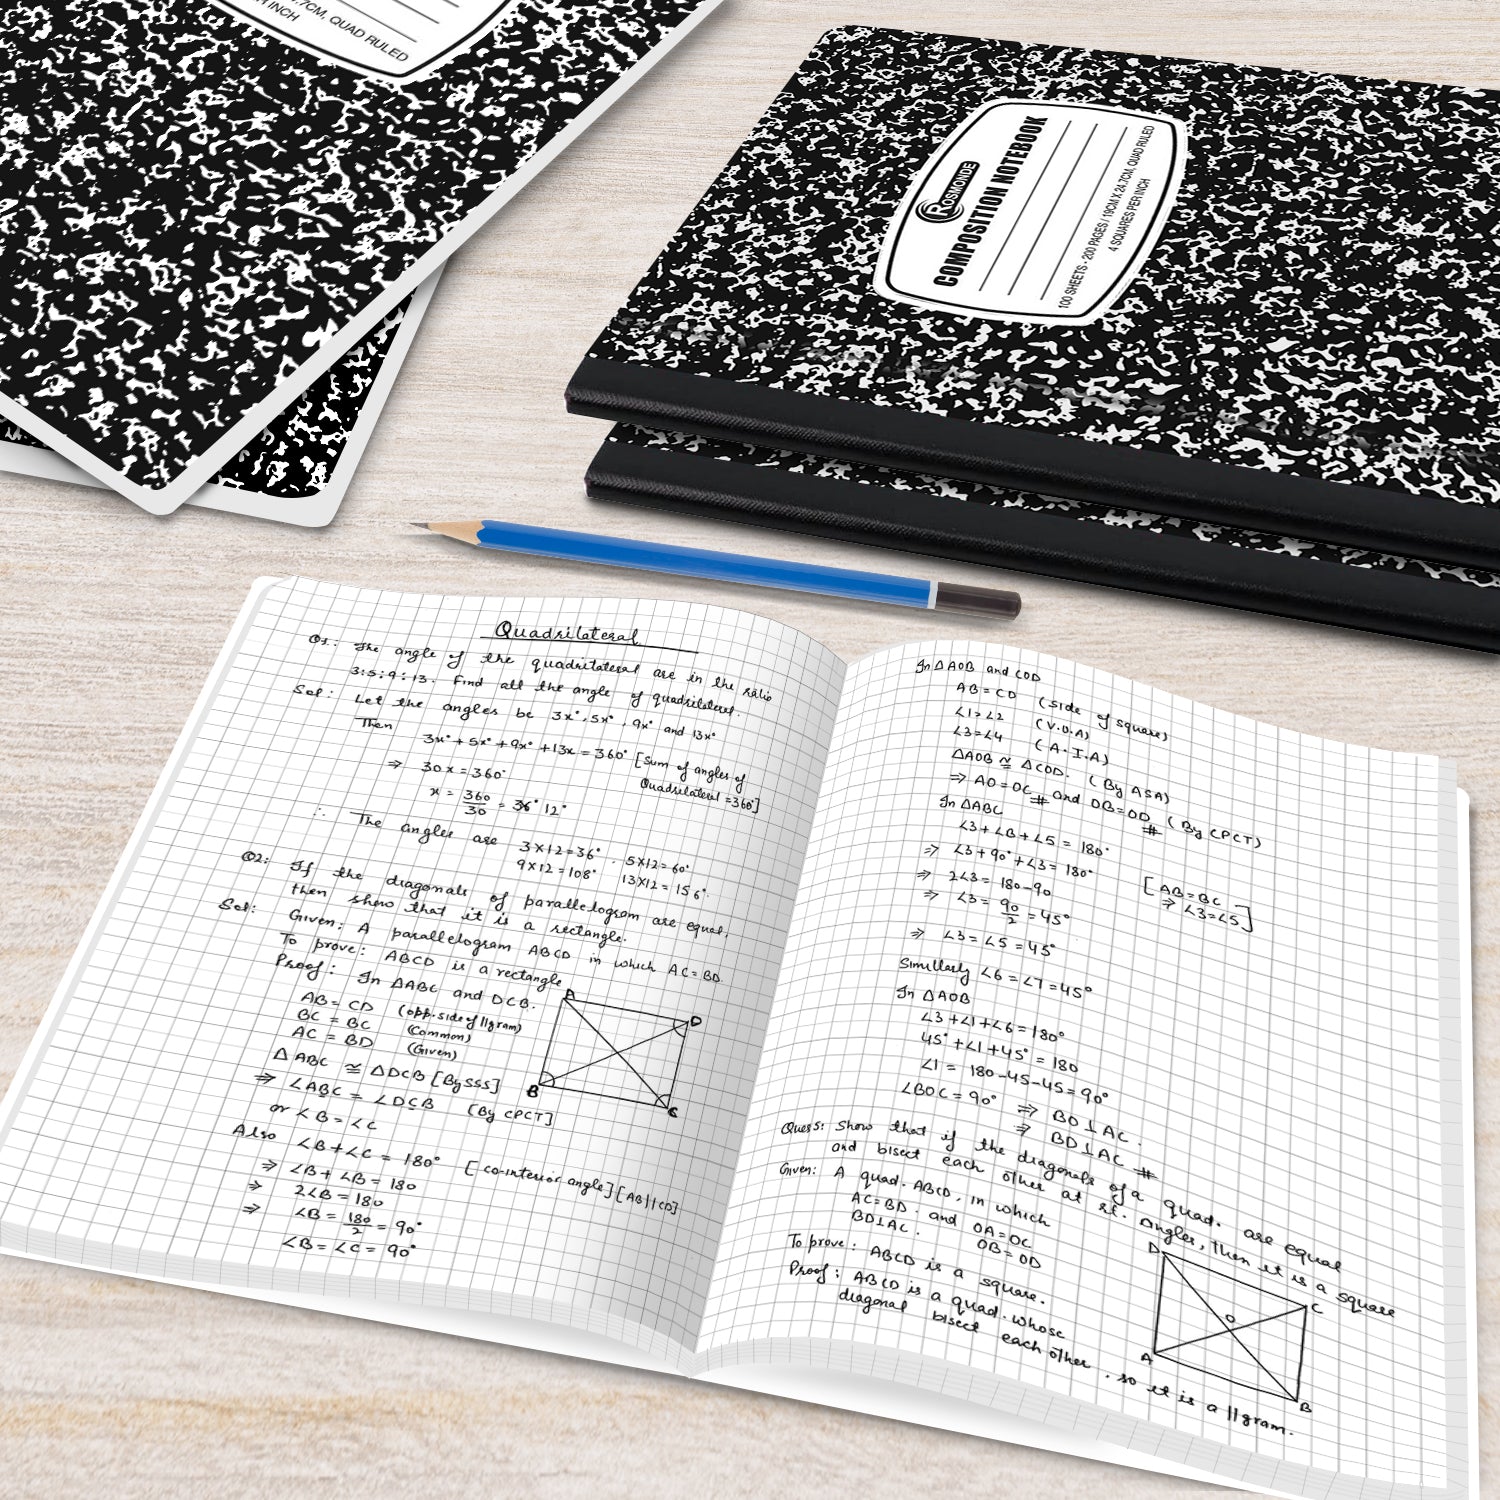 .7CM, QUAD RULED
R INCH
ROSMONDE
COMPOSITION NOTEBOOK
100 SHEETS - 200 PAGES / 19CM X 24.7CM, QUAD RULED
4 SQUARES PER INCH
Quadrilateral
Q1: The angle of the quadrilateral are in the ratio
3:5:9:13. Find all the angle of quadrilateral.
Sol: Let the angles be 3x°, 5x°, 9x° and 13x°
Then
3x° + 5x° + 9x° + 13x = 360° [Sum of angles of
Quadrilateral = 360°]
⇒ 30x = 360°
x = 360/30 = 36° 12°
∴ The angles are 3×12=36°, 5×12=60°
9×12=108° 13×12=156°.
Q2: If the diagonals of parallelogram are equal,
then show that it is a rectangle.
Sol: Given: A parallelogram ABCD in which AC=BD.
To prove: ABCD is a rectangle
Proof: In ΔABC and DCB.
AB = CD (opp. side of ||gram)
BC = BC (Common)
AC = BD (Given)
Δ ABC ≅ ΔDCB [By SSS]
⇒ ∠ABC = ∠DCB (By CPCT]
or ∠B = ∠C
Also ∠B+∠C = 180° [co-interior angle] [AB||CD]
⇒ ∠B + ∠B = 180
⇒ 2∠B = 180
⇒ ∠B = 180/2 = 90°
∠B = ∠C = 90°
A
D
B
C
In Δ AOB and COD
AB = CD (side of square)
∠1=∠2 (V.O.A)
∠3=∠4 (A.I.A)
ΔAOB ≅ ΔCOD. (By ASA)
⇒ AO=OC # and OB=OD # (By CPCT)
In ΔABC
∠3+∠B+∠5 = 180°
⇒ ∠3+90°+∠3 = 180° [AB=BC
⇒ 2∠3 = 180-90 ⇒ ∠3=∠5]
⇒ ∠3 = 90/2 = 45°
⇒ ∠3 = ∠5 = 45°
Simillarly ∠6 = ∠7 = 45°
In ΔAOB
∠3+∠1+∠6 = 180°
45°+∠1+45° = 180
∠1 = 180-45-45 = 90°
∠BOC = 90° ⇒ BO⊥AC.
⇒ BD⊥AC #
Ques 5: Show that if the diagonals of a quad. are equal
and bisect each other at rt. angles, then it is a square
Given: A quad. ABCD, in which
AC=BD. and OA=OC
BD⊥AC. OB=OD
To prove: ABCD is a square.
Proof: ABCD is a quad. whose
diagonal bisect each other. so it is a ||gram.
D
C
O
A
B